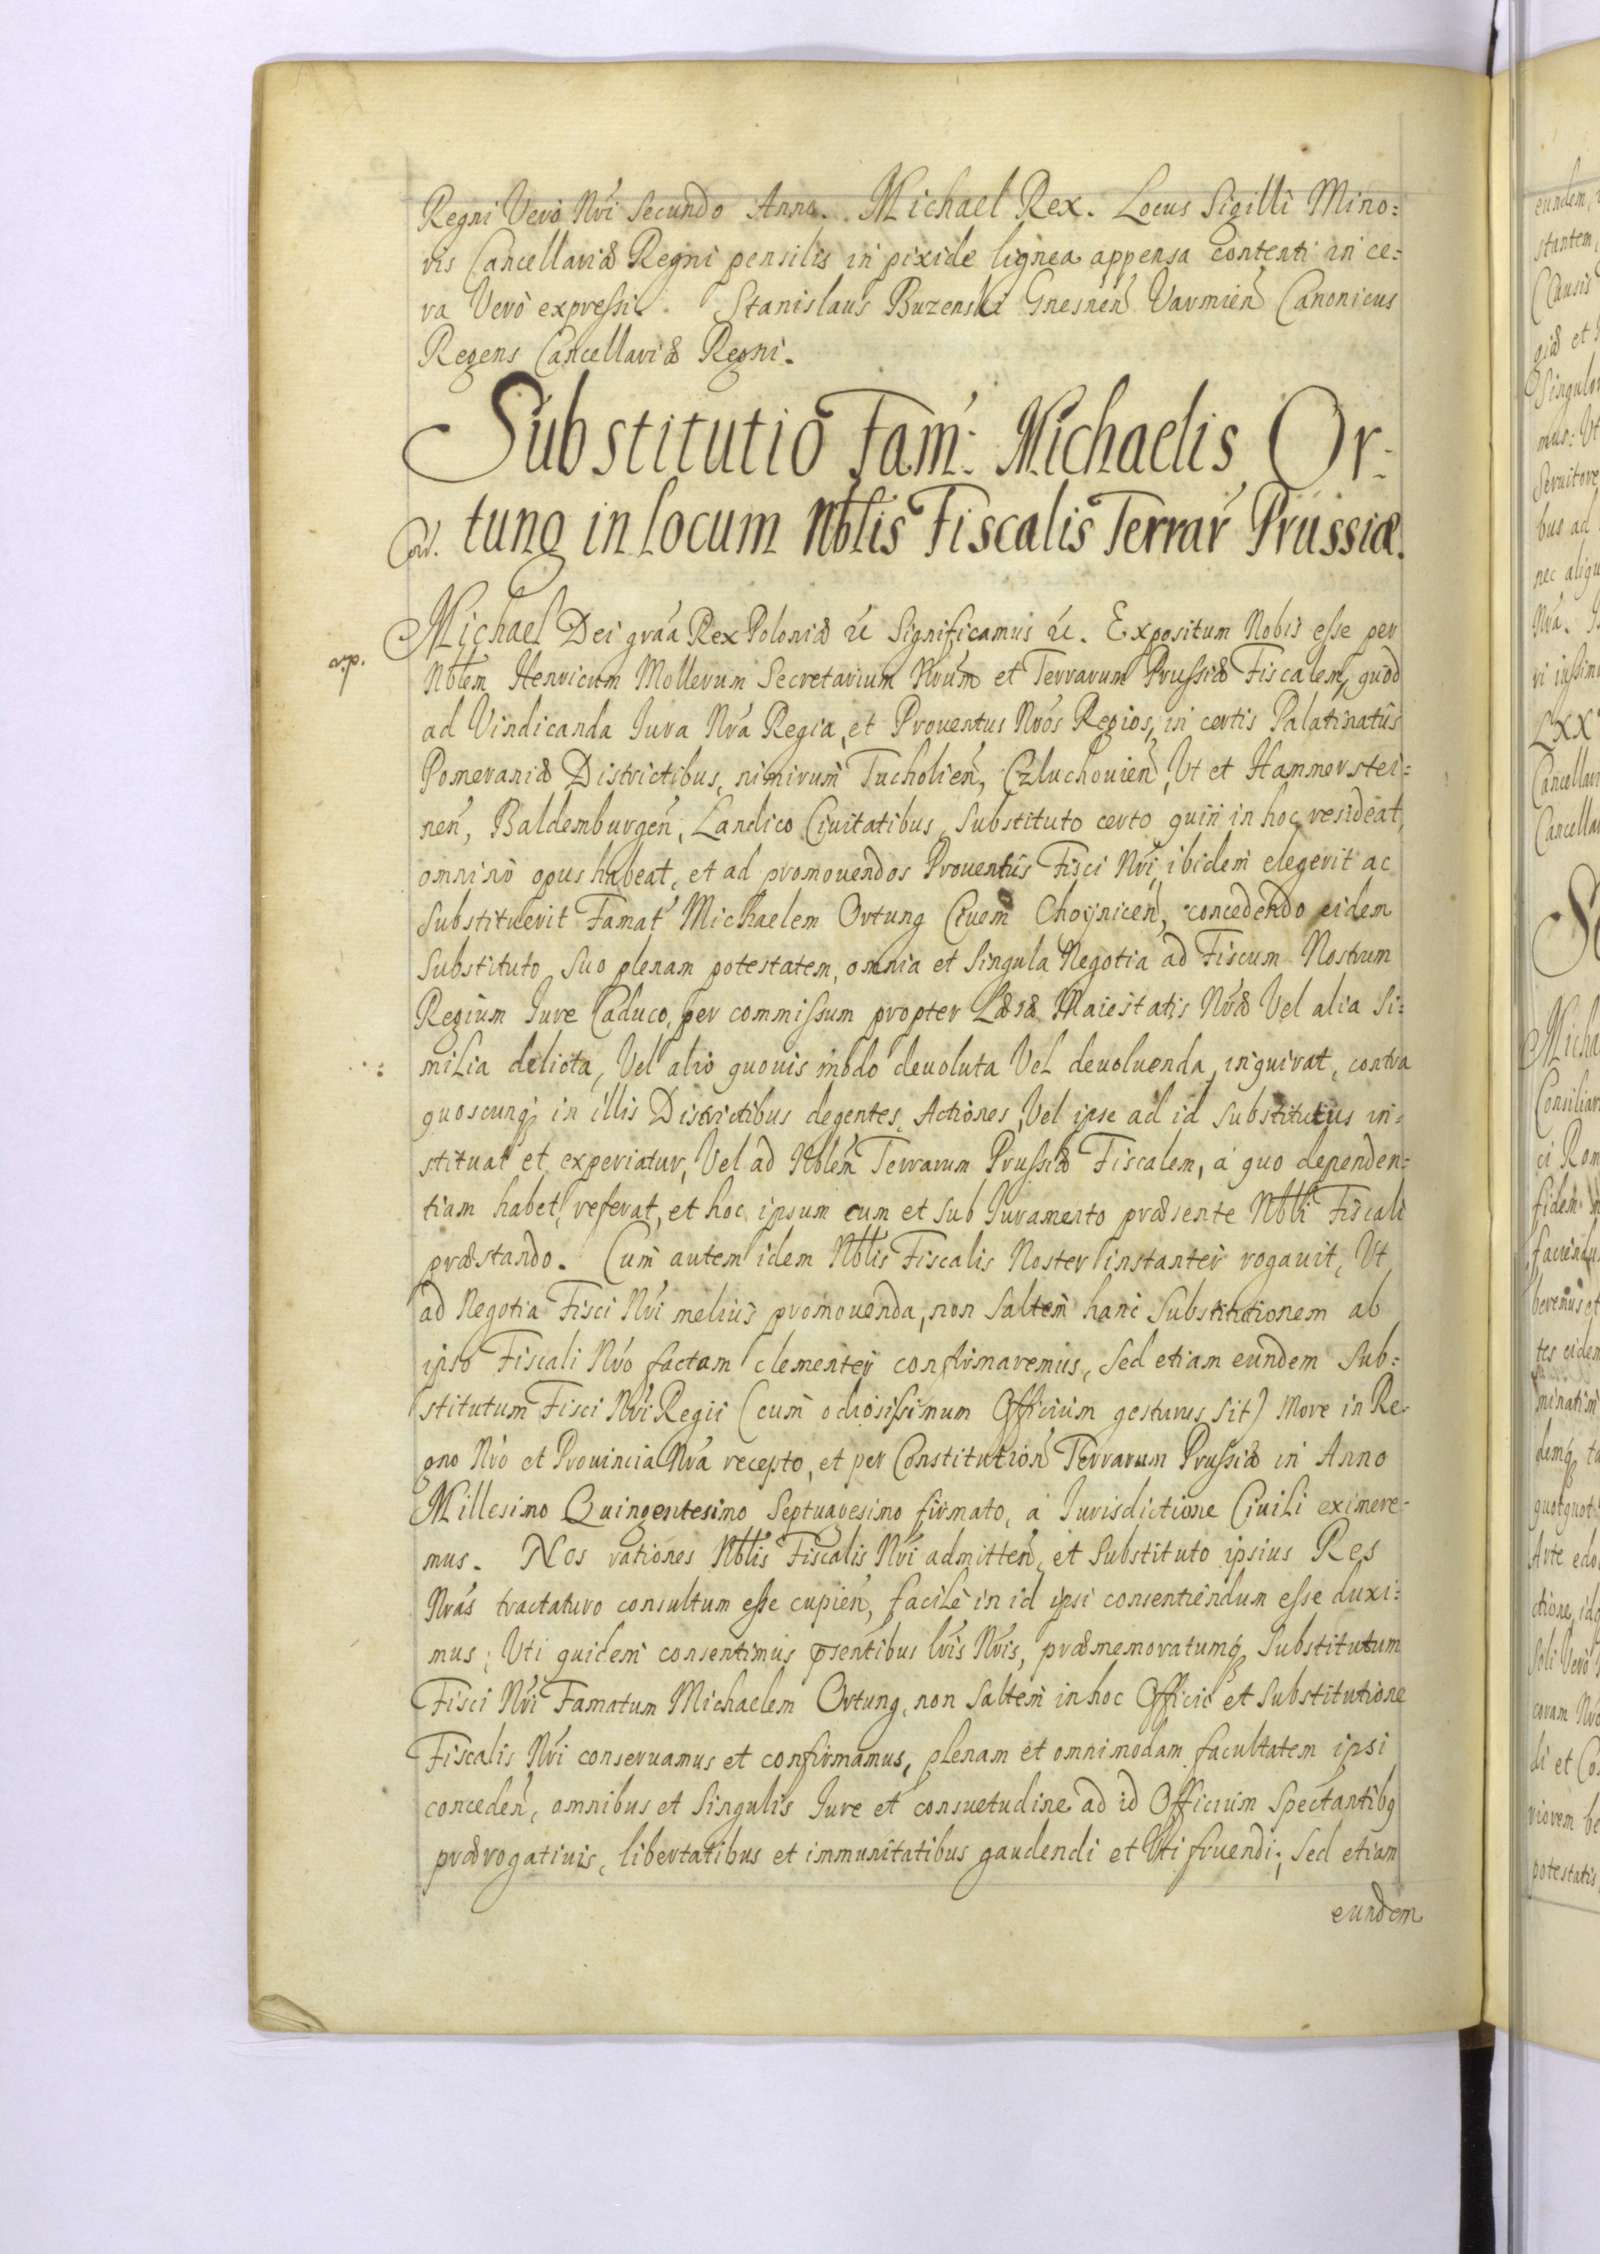 Regni Verò Nri Secundo Anno. Michael Rex. Locus Sigilli Mino:
ris Cancellariæ Regni pensilis in pixide lignea appensa contenti in ce:
ra Verò expressi. Stanislaus Buzenski Gnesnen Varmien Canonicus
Regens Cancellariæ Regni.
Substitutio Fam: Michaelis Or:
tung in locum Nblis Fiscalis Terrar Prussiæ.
Michael Dei graa Rex Poloniæ &c Significamus &c. Expositum Nobis esse per
Nblem Henricum Mollerum Secretarium Nrum et Terrarum Prussiæ Fiscalem, quod
ad Vindicanda Iura Nra Regia, et Prouentus Nros Regios, in certis Palatinatus
Pomeraniæ Districtibus, nimirum Tucholien, Czluchouien, Ut et Hammerstei:
nen, Baldemburgen, Landico Ciuitatibus, Substituto certo quin in hoc resideat,
omninò opus habeat, et ad promouendos Prouentus Fisci Nri, ibidem elegerit ac
Substituerit Famat Michaelem Ortung Ciuem Choynicen, concedendo eidem
Substituto Suo plenam potestatem, omnia et Singula Negotia ad Fiscum Nostrum
Regium Iure Caduco, per commissum propter Læsæ Maiestatis Nræ Vel alia Si:
milia delicta, Vel alio quouis modo deuoluta Vel deuoluenda, inquirat, contra
quoscunq in illis Districtibus degentes, Actiones, Vel ipse ad id Substitutus in:
stituat et experiatur, Vel ad Nblem Terrarum Prussiæ Fiscalem, à quo dependen:
tiam habet, referat, et hoc ipsum cum et sub Iuramento præsente Nbli Fiscali
præstando. Cum autem idem Nblis Fiscalis Noster instanter rogauit, Ut
ad Negotia Fisci Nri melius promouenda, non Saltem hanc Substitutionem ab
ipso Fiscali Nro factam clementer confirmaremus, Sed etiam eundem Sub:
stitutum Fisci Nri Regii (cum odiosissimum Officium gesturus sit) More in Re:
gno Nro et Prouincia Nra recepto, et per Constitution Terrarum Prussiæ in Anno
Millesimo Quingentesimo Septuagesimo firmato, à Iurisdictione Ciuili eximere:
mus. Nos rationes Nblis Fiscalis Nri admitten, et Substituto ipsius Res
Nras tractaturo consultum esse cupien, facilè in id ipsi consentiendum esse duxi:
mus; Uti quidem consentimus pntibus lris Nris, præmemoratumq Substitutum
Fisci Nri Famatum Michaelem Ortung, non Saltem in hoc Officio et Substitutione
Fiscalis Nri conseruamus et confirmamus, plenam et omnimodam facultatem ipsi
conceden, omnibus et Singulis Iure et consuetudine ad id Officium Spectantibq
prærogatiuis, libertatibus et immunitatibus gaudendi et Uti fruendi; Sed etiam
eundem